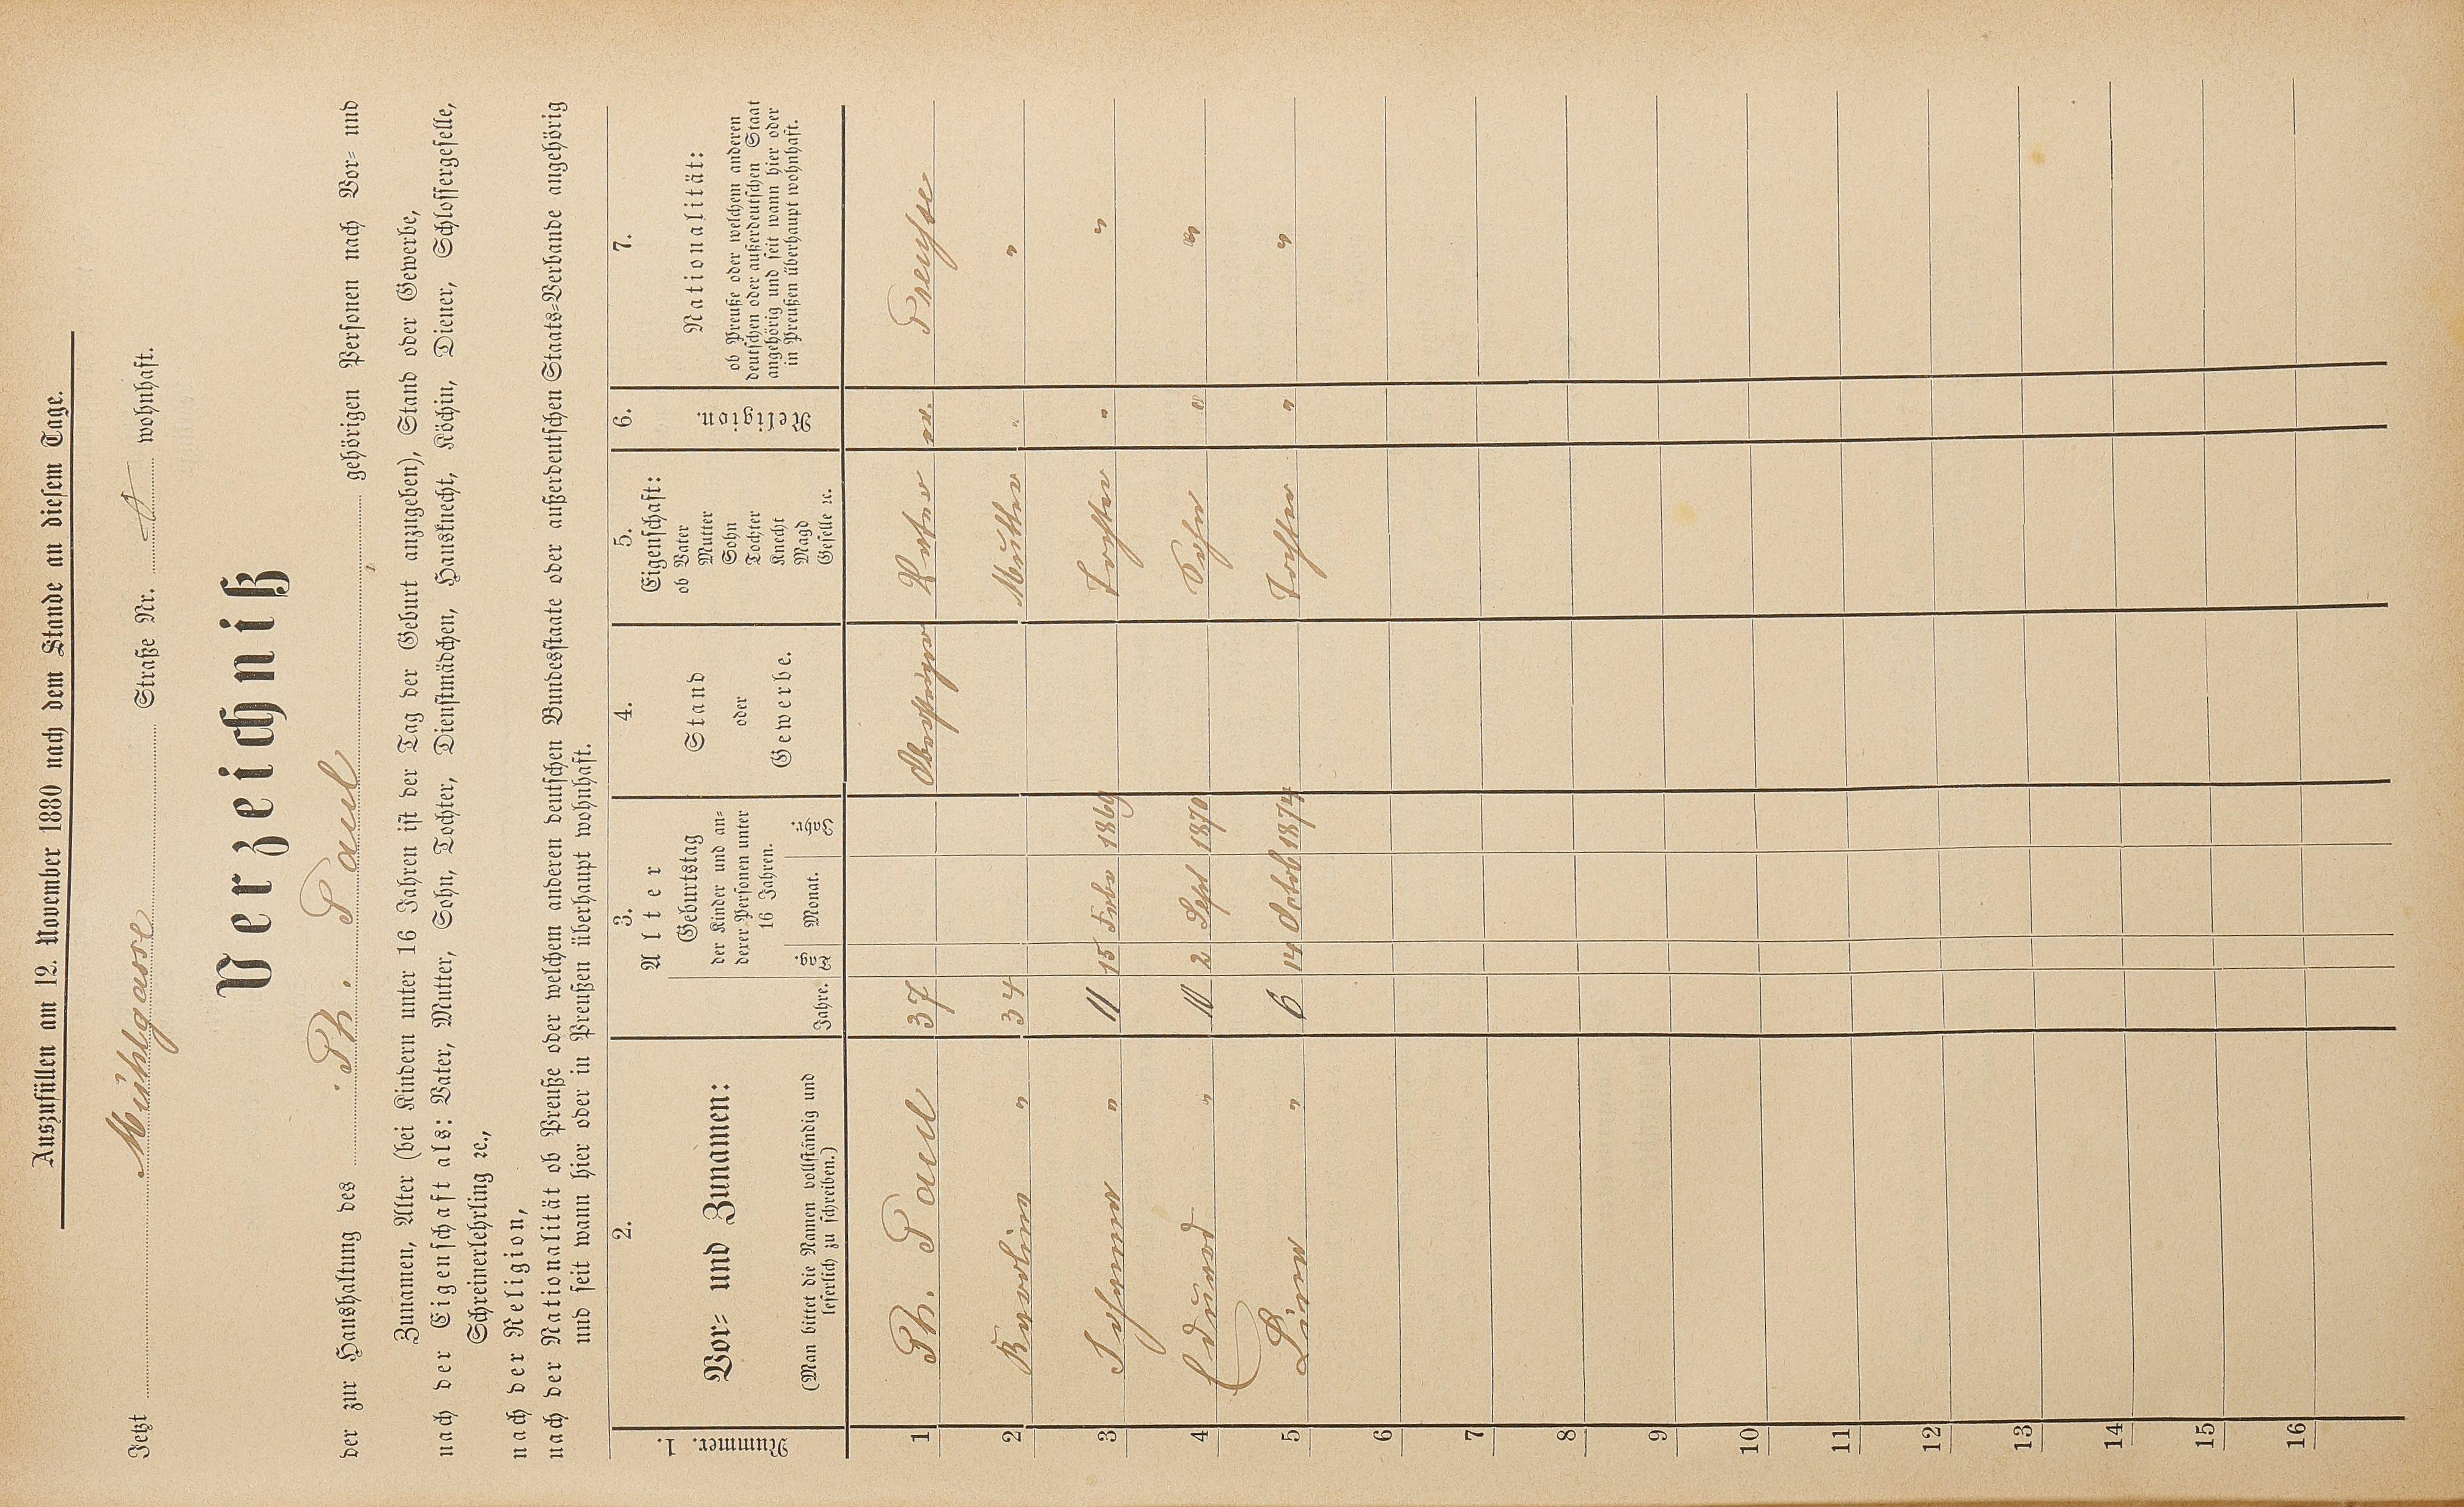 Auszufüllen am 12. November 1880 nach dem Stande an diesem Tage.
Jetzt Mühlgasse Straße Nr. wohnhaft.
Verzeichniß
der zur Haushaltung des Ph. Paul gehörigen Personen nach Vor- und
Zunamen, Alter (bei Kindern unter 16 Jahren ist der Tag der Geburt anzugeben), Stand oder Gewerbe,
nach der Eigenschaft als: Vater, Mutter, Sohn, Tochter, Dienstmädchen, Hausknecht, Köchin, Diener, Schlossergeselle,
Schreinerlehrling ꝛc.,
nach der Religion,
nach der Nationalität ob Preuße oder welchem anderen deutschen Bundesstaate oder außerdeutschen Staats-Verbande angehörig
und seit wann hier oder in Preußen überhaupt wohnhaft.
Nummer. 1.
2.
Vor- und Zunamen:
(Man bittet die Namen vollständig und
leserlich zu schreiben.)
3.
Alter
Jahre.
Geburtstag
der Kinder und an-
derer Personen unter
16 Jahren.
Tag Monat. Jahr.
4.
Stand
oder
Gewerbe.
5.
Eigenschaft:
ob Vater
Mutter
Sohn
Tochter
Knecht
Magd
Geselle ꝛc.
6.
Religion.
7.
Nationalität:
ob Preuße oder welchem anderen
deutschen oder außerdeutschen Staat
angehörig und seit wann hier oder
in Preußen überhaupt wohnhaft.
1 Ph. Paul 37 Obersteiger Vater ev. Preusse
2 Karoline " 34 Mutter " "
3 Johanna " 11 15 Febr 1869 Tochter " "
4 Eduard " 10 2 Sept 1870 Sohn " "
5 Lina " 6 14 Octob 1874 Tochter " "
6
7
8
9
10
11
12
13
14
15
16